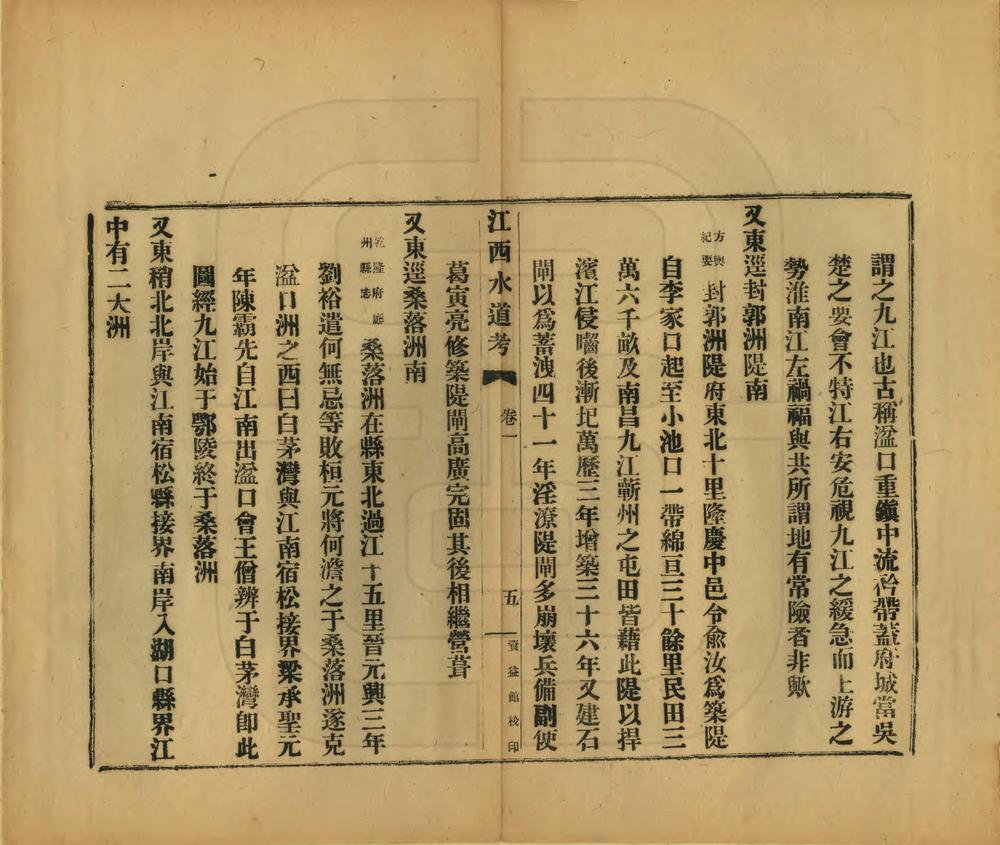 謂之九江也古稱湓口重鎭中流衿帶蓋府城當吳
楚之要會不特江右安危視九江之緩急而上游之
勢淮南江左禍福與共所謂地有常險者非歟
又東逕封郭洲隄南
方輿紀要封郭洲隄府東北十里隆慶中邑令俞汝爲築隄
自李家口起至小池口一帶綿亘三十餘里民田三
萬六千畝及南昌九江蘄州之屯田皆藉此隄以捍
濱江侵嚙後漸圮萬歷三年增築三十六年又建石
閘以爲蓄洩四十一年淫潦隄閘多崩壞兵備副使
江西水道考 卷一 五 資益館校印
葛寅亮修築隄閘高廣完固其後相繼營葺
又東逕桑落洲南
乾隆府廳州縣志桑落洲在縣東北過江十五里晉元興三年
劉裕遣何無忌等敗桓元將何澹之于桑落洲遂克
湓口洲之西曰白茅灣與江南宿松接界梁承聖元
年陳霸先自江南出湓口會王僧辨于白茅灣卽此
圖經九江始于鄂陵終于桑落洲
又東稍北北岸與江南宿松縣接界南岸入湖口縣界江
中有二大洲